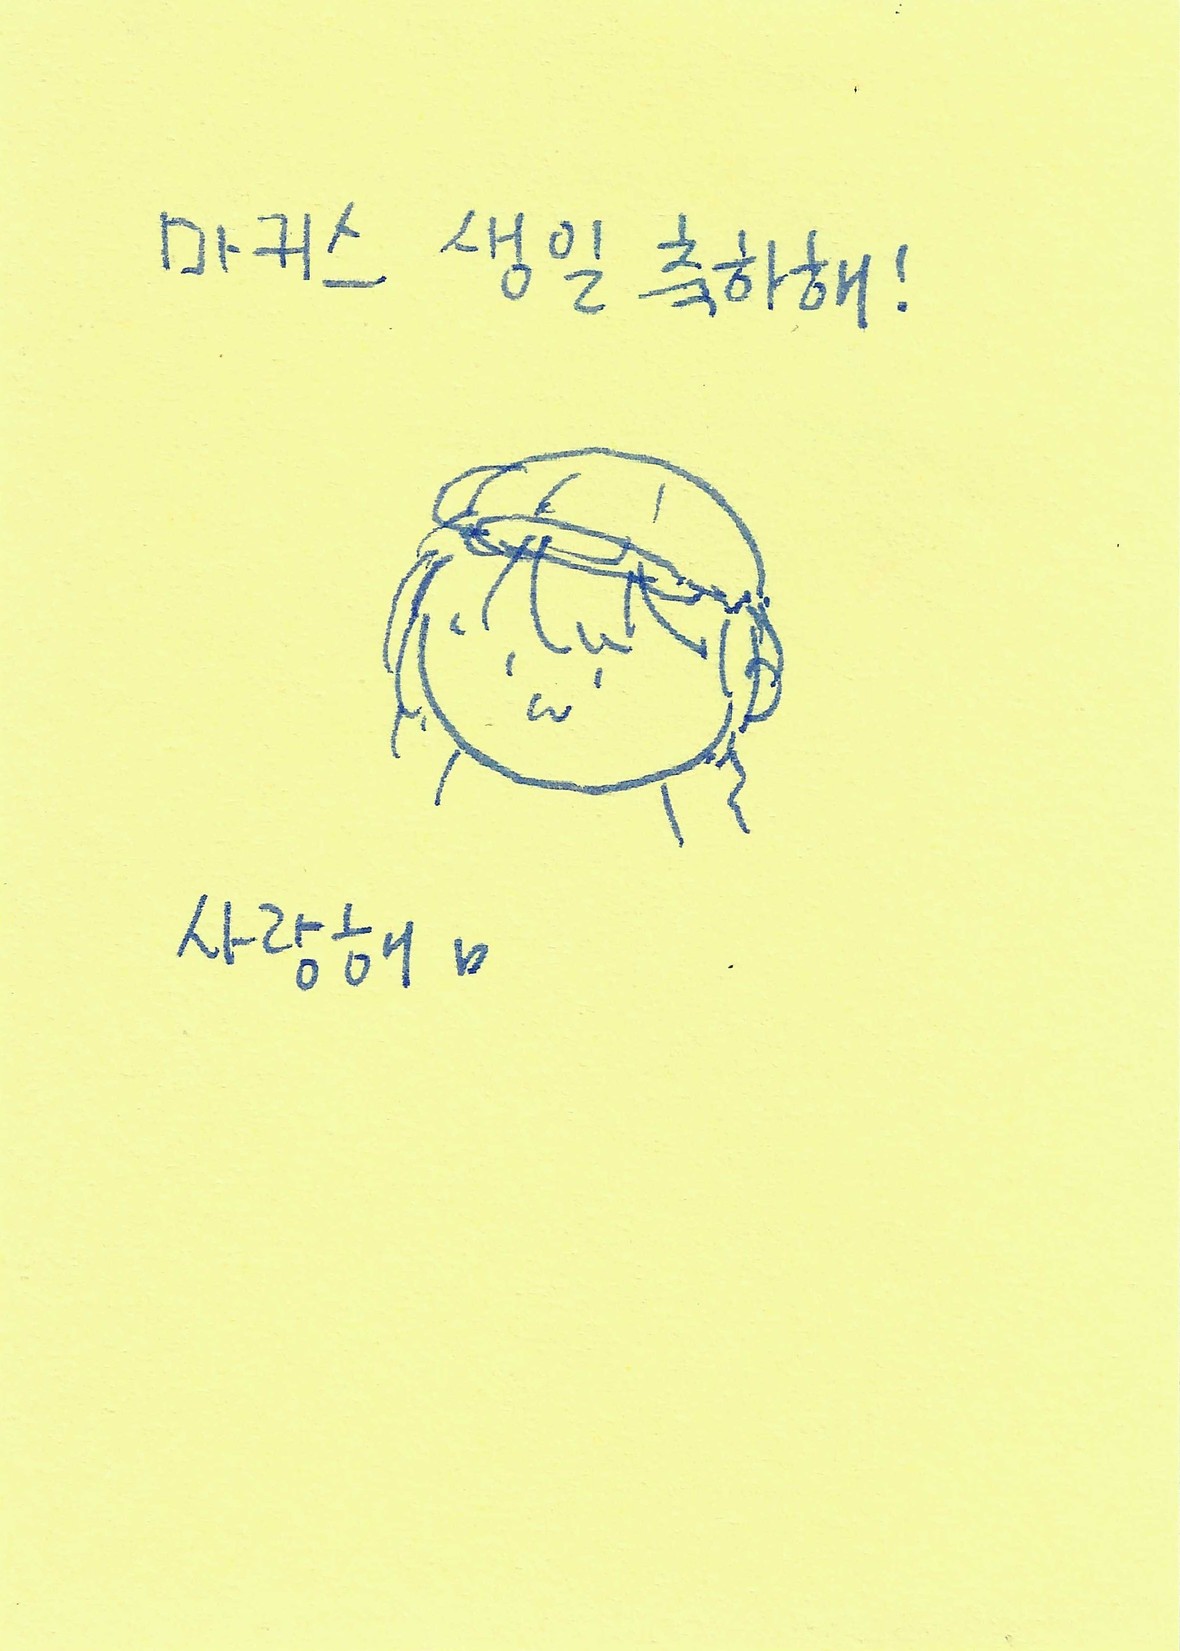 마퀴스 생일 축하해!
사랑해